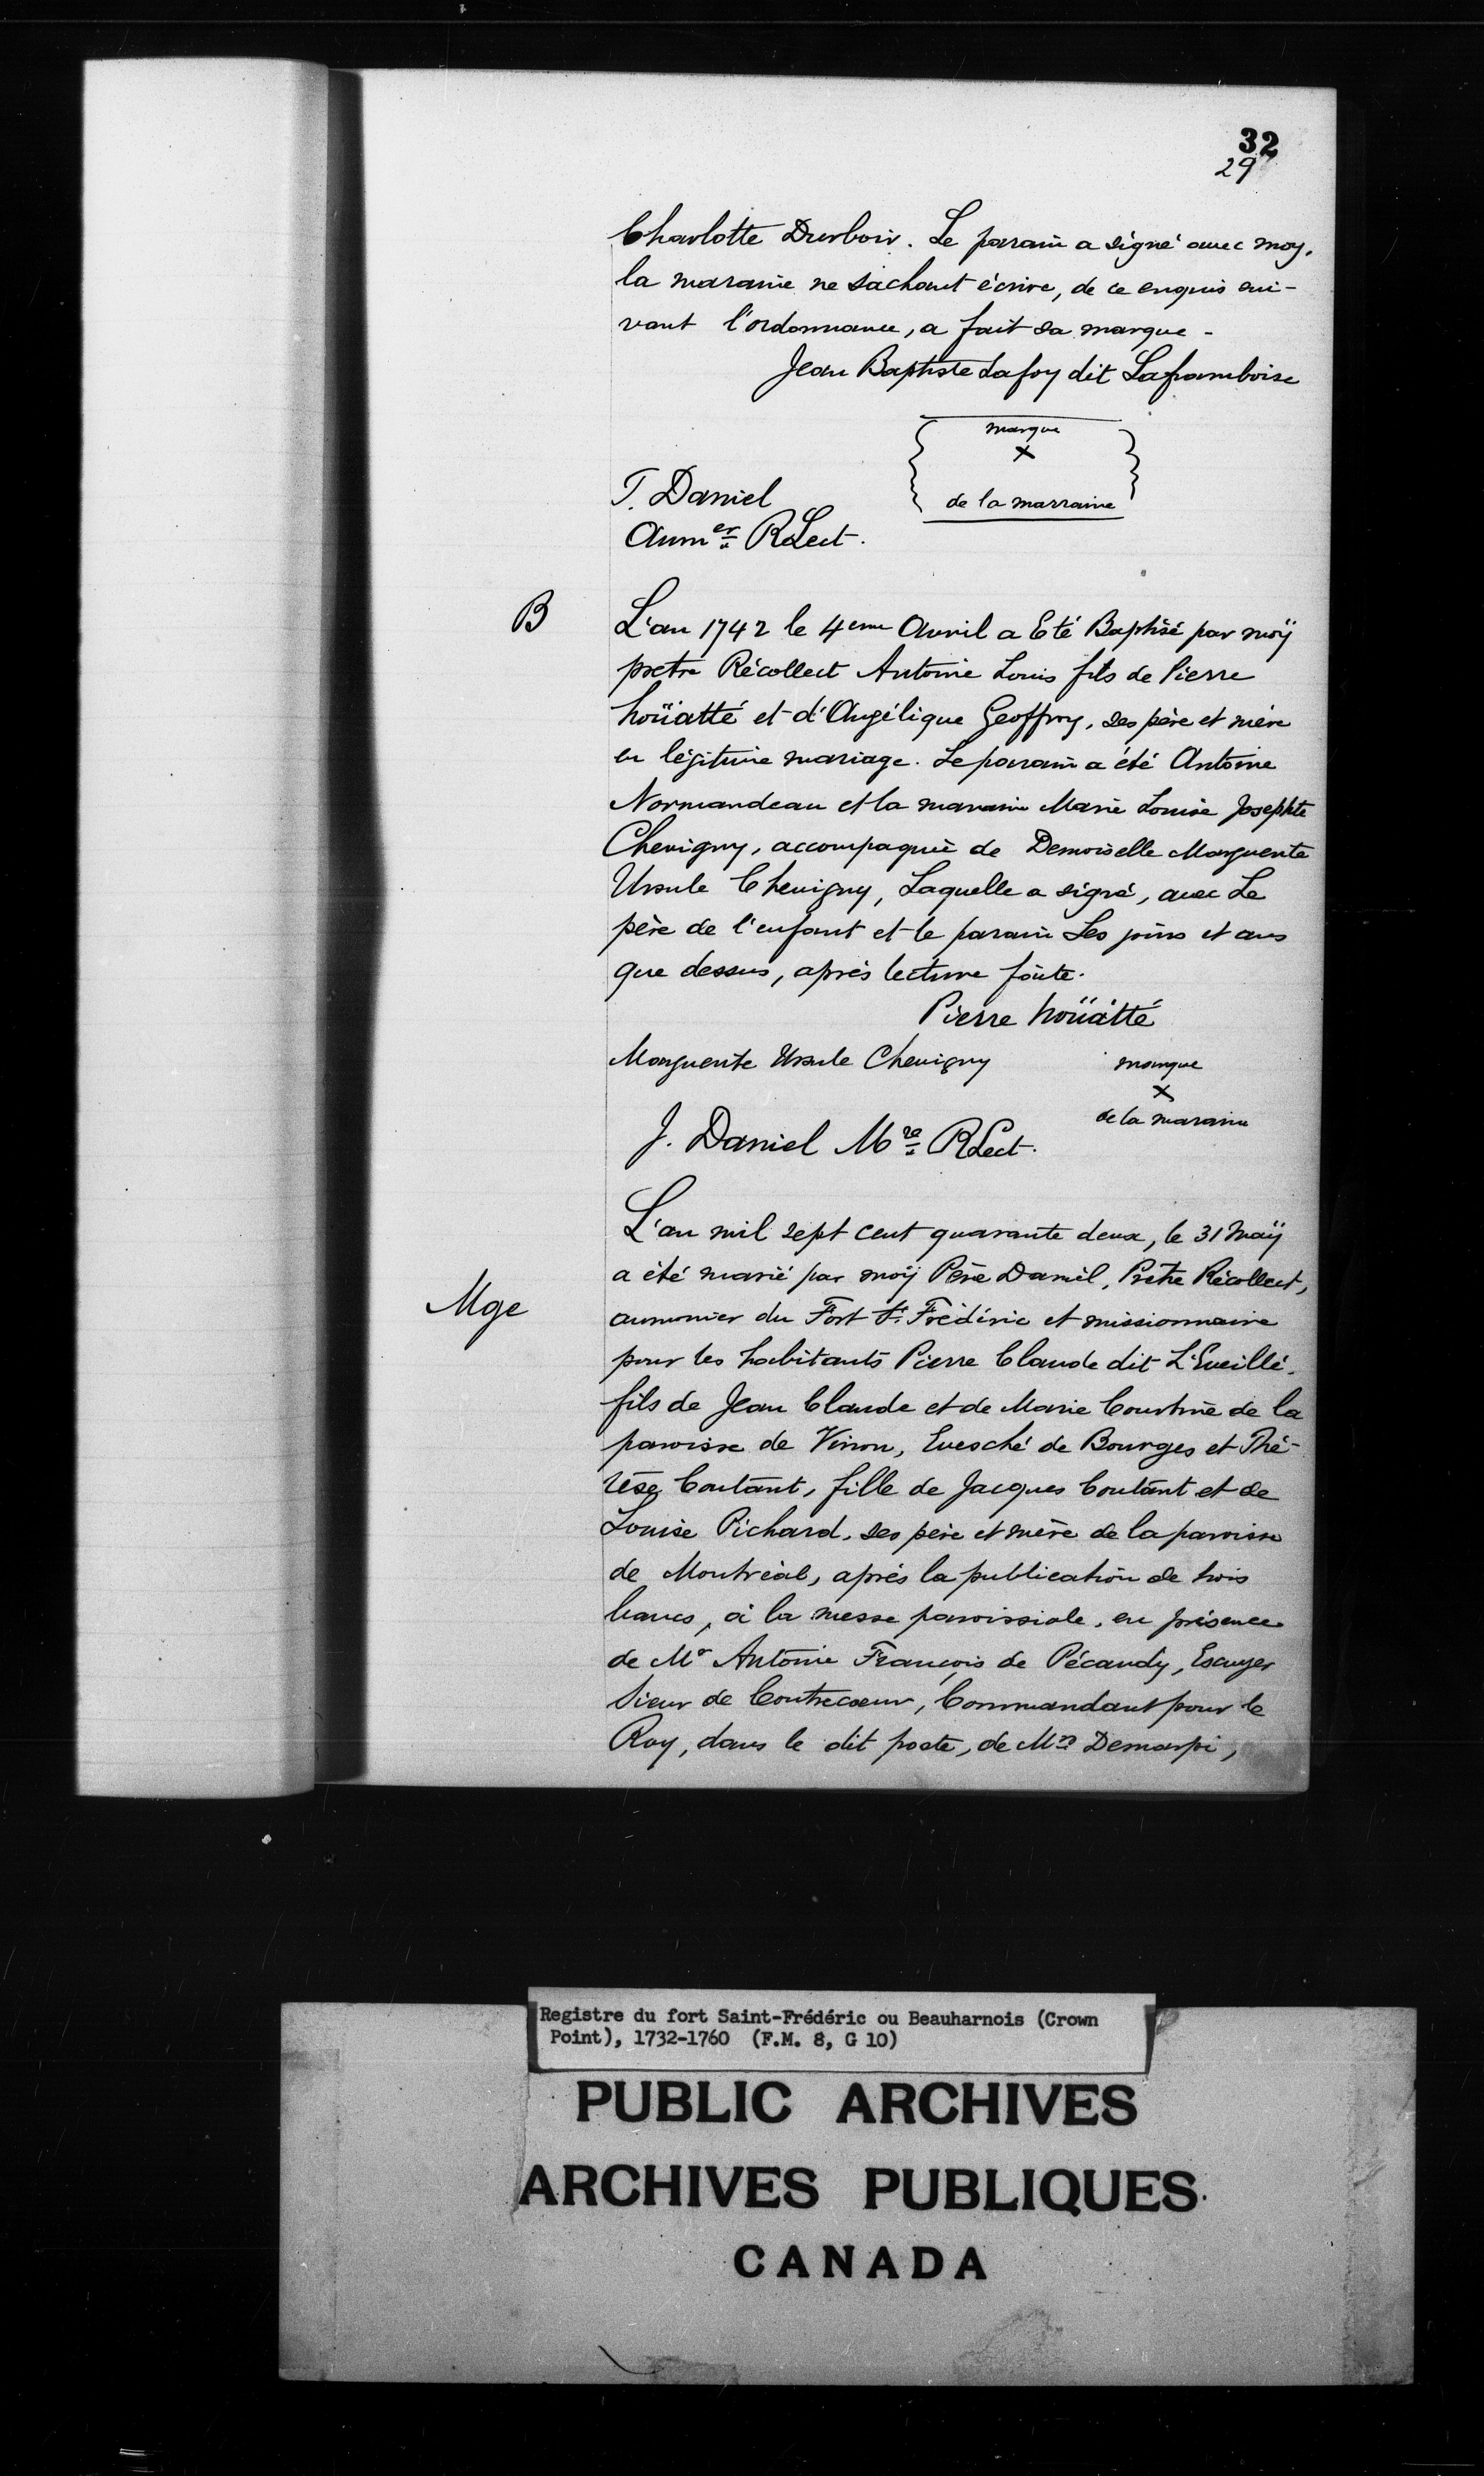 32
29
Charlotte Durbois. Le parain a signé avec moy,
la maraine ne sachant écrire, de ce enquis sui-
vant l'ordonnance, a fait sa marque -
Jean Baptiste Lafoy dit Laframboise
marque
X
de la marraine
T. Daniel
Aumer RLect.
B
L'an 1742 le 4eme Avril a Eté Baptisé par moÿ
pretre Récollect Antoine Louis fils de Pierre
hoüatté et d'Angélique Geoffroy, ses père et mère
en légitime mariage. Le parain a été Antoine
Normandeau et la maraine Marie Louise Josephte
Chevigny, accompagnée de Demoiselle Marguerite
Ursule Chevigny, Laquelle a signé, avec Le
père de l'enfant et le parain Les jours et ans
que dessus, après lecture faite.
Pierre hoüatté
Marguerite Ursule Chevigny
marque
X
de la maraine
J. Daniel Mre RLect.
L'an mil sept cent quarante deux, le 31 Maÿ
a été marié par moÿ Père Daniel, Prêtre Récollect,
Mge
aumonier du Fort St. Frédéric et missionnaire
pour les habitants Pierre Claude dit L'Eveillé,
fils de Jean Claude et de Marie Courtine de la
paroisse de Virron, Evesché de Bourges et Thé-
rèse Coutant, fille de Jacques Coutant et de
Louise Pichard, ses père et mère de la paroisse
de Montréal, après la publication de trois
bancs, à la messe paroissiale, en présence
de Mr Antoine François de Pécaudy, Escuyer
Sieur de Contrecoeur, Commandant pour le
Roy, dans le dit poste, de Mrs Demarpi,
Registre du fort Saint-Frédéric ou Beauharnois (Crown
Point), 1732-1760 (F.M. 8, G 10)
PUBLIC ARCHIVES
ARCHIVES PUBLIQUES
CANADA